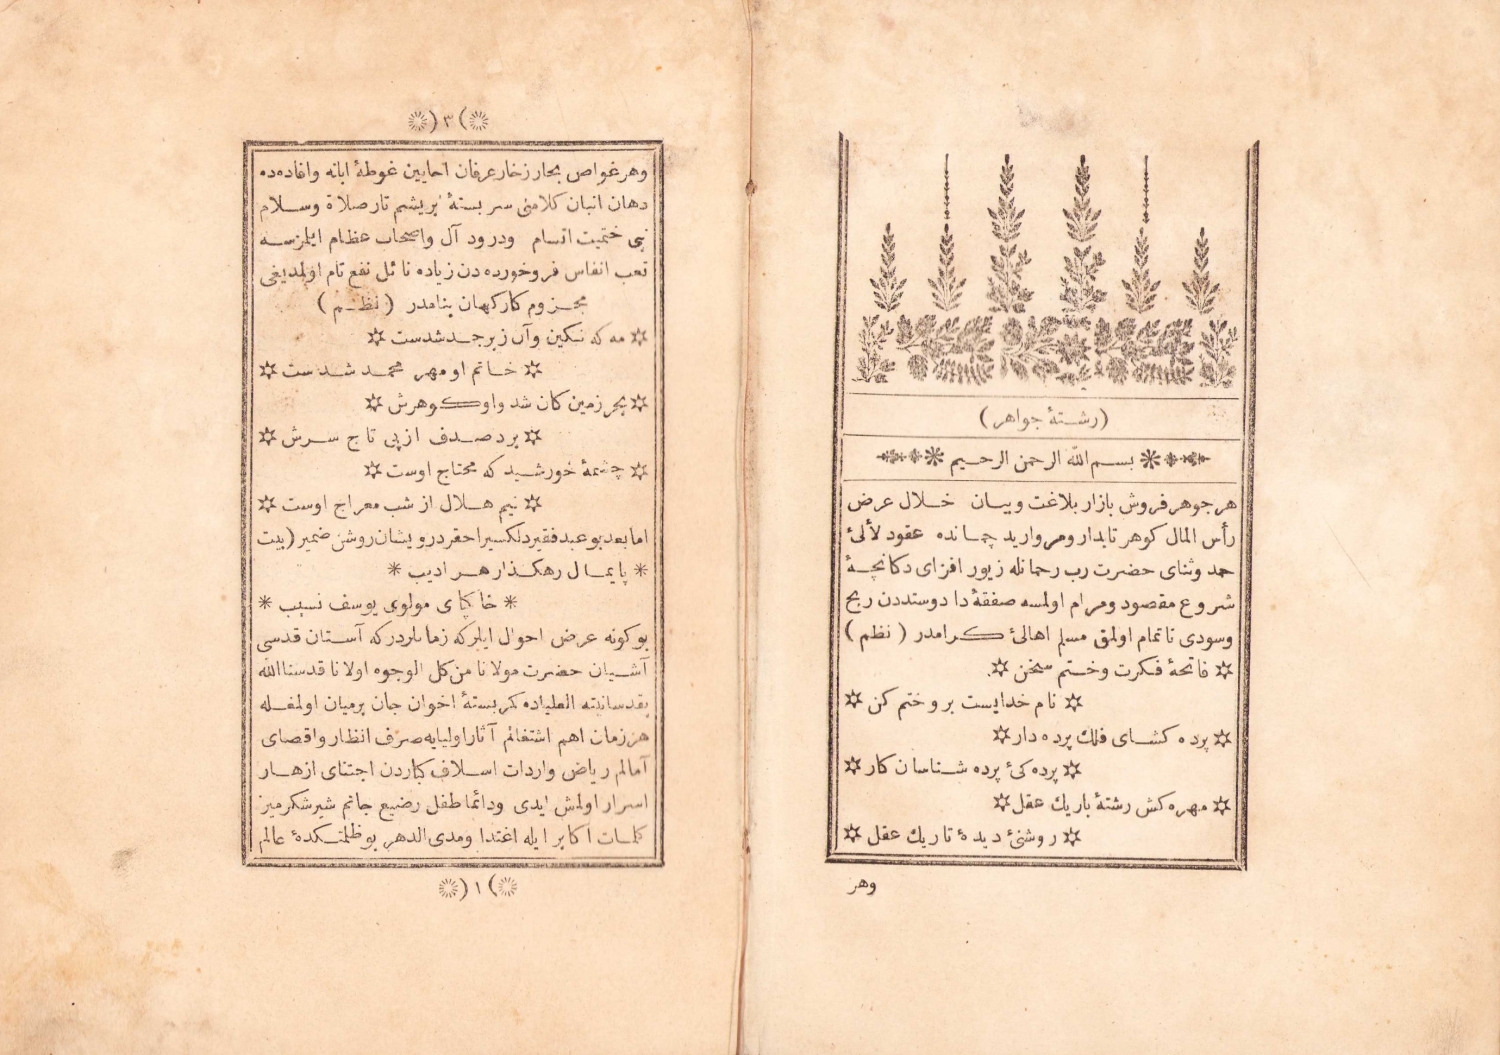 (رشتهٔ جواهر)
بسم الله الرحمن الرحيم
هر جوهر فروش بازار بلاغت وبيان خلال عرض
رأس المال كوهر تابدار ومرواريد چمانده عقود لألئ
حمد وثناى حضرت رب رحمانله زيور افزاى دكانچهٔ
شروع مقصود ومرام اولمسه صفقهٔ دادوستددن ربح
وسودى ناتمام اولمق مسلم اهالئ كرامدر (نظم)
✡ فاتحهٔ فكرت وختم سخن ✡
✡ نام خدايست برو ختم كن ✡
✡ پرده كشاى فلك پرده دار ✡
✡ پرده كئ پرده شناسان كار ✡
✡ مهره كش رشتهٔ باريك عقل ✡
✡ روشنئ ديدهٔ تاريك عقل ✡
وهر
)٣(
وهر غواص بحار زخار عرفان احايين غوطهٔ ابانه وافاده ده
دهان انبان كلامنى سر بستهٔ بريشم تار صلاة وسلام
نبى ختميت اتسام ودرود آل واصحاب عظام ايلمزسه
تعب انفاس فروخورده دن زياده نائل نفع تام اولمديغى
مجزوم كاركهان بنامدر (نظم)
✡ مه كه نكين وآن زبرجد شدست ✡
✡ خاتم او مهر محمد شدست ✡
✡ بحر زمين كان شد واو كوهرش ✡
✡ برد صدف از پى تاج سرش ✡
✡ چشمهٔ خورشيد كه محتاج اوست ✡
✡ نيم هلال از شب معراج اوست ✡
اما بعد بو عبد فقير دلكسير احقر درويشان روشن ضمير (بيت
* پايمال رهكذار هر اديب *
* خاكپاى مولوى يوسف نسيب *
بو كونه عرض احوال ايلر كه زمانلردر كه آستان قدسى
آشيان حضرت مولانا من كل الوجوه اولانا قدسنا الله
بقدسانيته العلياده كمر بستهٔ اخوان جان برميان اولمغله
هر زمان اهم اشتغالم آثار اوليايه صرف انظار واقصاى
آمالم رياض واردات اسلاف كباردن اجتناى ازهار
اسرار اولمش ايدى ودائما طفل رضيع جانم شير شكر ميز
كلمات اكابر ايله اغتدا ومدى الدهر بو ظلمتكدهٔ عالم
)١(